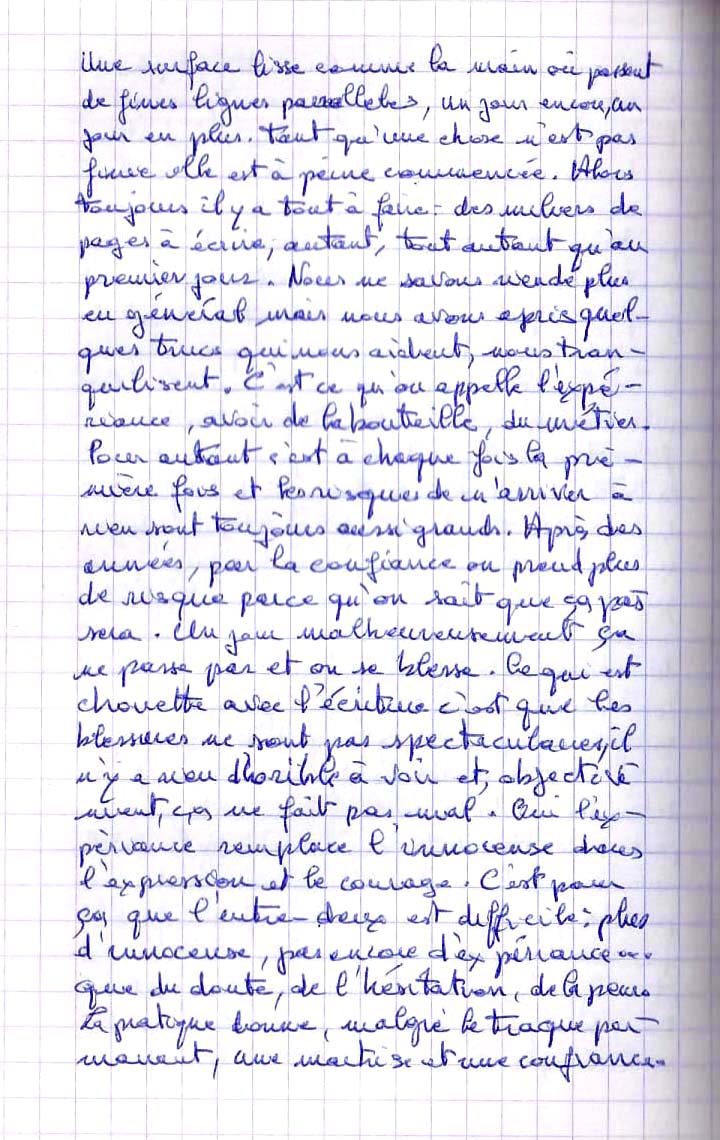 Une surface lisse comme la main où passent
de fines lignes parallelles, un jour encore, un
jour en plus. Tant qu'une chose n'est pas
finie elle est à peine commencée. Alors
toujours il y a tout à faire : des milliers de
pages à écrire, autant, tout autant qu'au
premier jour. Nous ne savons rien de plus
en général mais nous avons apris quel-
ques trucs qui nous aident, nous tran-
quilisent. C'est ce qu'on appelle l'expé-
riance, avoir de la bouteille, du métier.
Pour autant c'est à chaque fois la pre-
mière fois et les risques de n'arriver à
rien sont toujours aussi grands. Après des
années, par la confiance on prend plus
de risque parce qu'on sait que ça pas
sera. Un jour malheureusement ça
ne passe pas et on se blesse. Ce qui est
chouette avec l'écriture c'est que les
blessures ne sont pas spectaculaires, il
n'y a rien d'horible à voir et, objective
ment, ça ne fait pas mal. Oui l'ex-
périance remplace l'innocense dans
l'expression et le courage. C'est pour
ça que l'entre-deux est difficile : plus
d'innocense, pas encore d'expériance ...
que du doute, de l'hésitation, de la peur.
La pratique donne, malgré le traque per-
manent, une maitrise et une confiance.